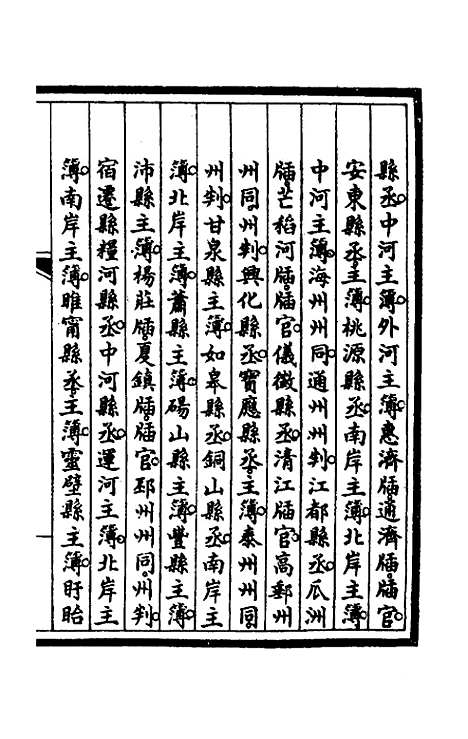 縣丞。中河主簿。外河主簿。惠濟牐。通濟牐。牐官。
安東縣丞。主簿。桃源縣丞。南岸主簿。北岸主簿。
中河主簿。海州州同。通州州判。江都縣丞。瓜洲
牐。芒稻河牐。牐官。儀徵縣丞。清江牐官。高郵州
州同。州判。興化縣丞。寶應縣丞。主簿。泰州州同。
州判。甘泉縣主簿。如皋縣丞。銅山縣丞。南岸主
簿。北岸主簿。蕭縣主簿。碭山縣主簿。豐縣主簿。
沛縣主簿。楊莊牐。夏鎮牐。牐官。邳州州同。州判。
宿遷縣糧河縣丞。中河縣丞。運河主簿。北岸主
簿。南岸主簿。睢甯縣丞。主簿。靈壁縣主簿。盱眙